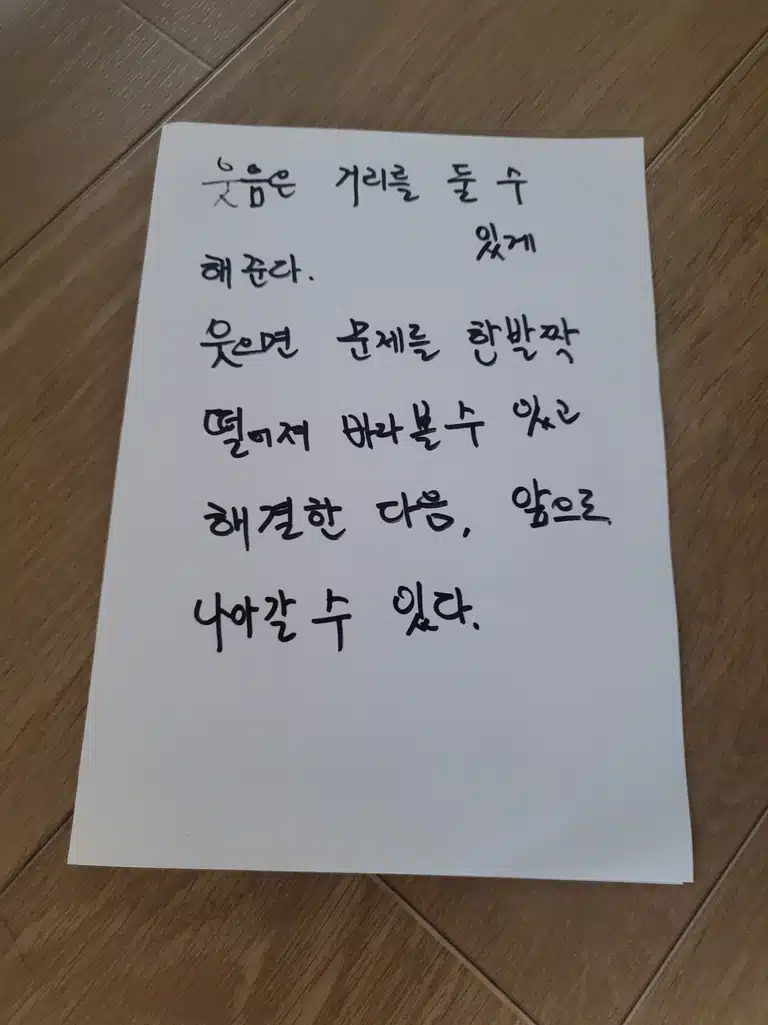 웃음은 거리를 둘 수
있게
해준다.
웃으면 문제를 한발짝
떨어져 바라볼 수 있고
해결한 다음, 앞으로
나아갈 수 있다.